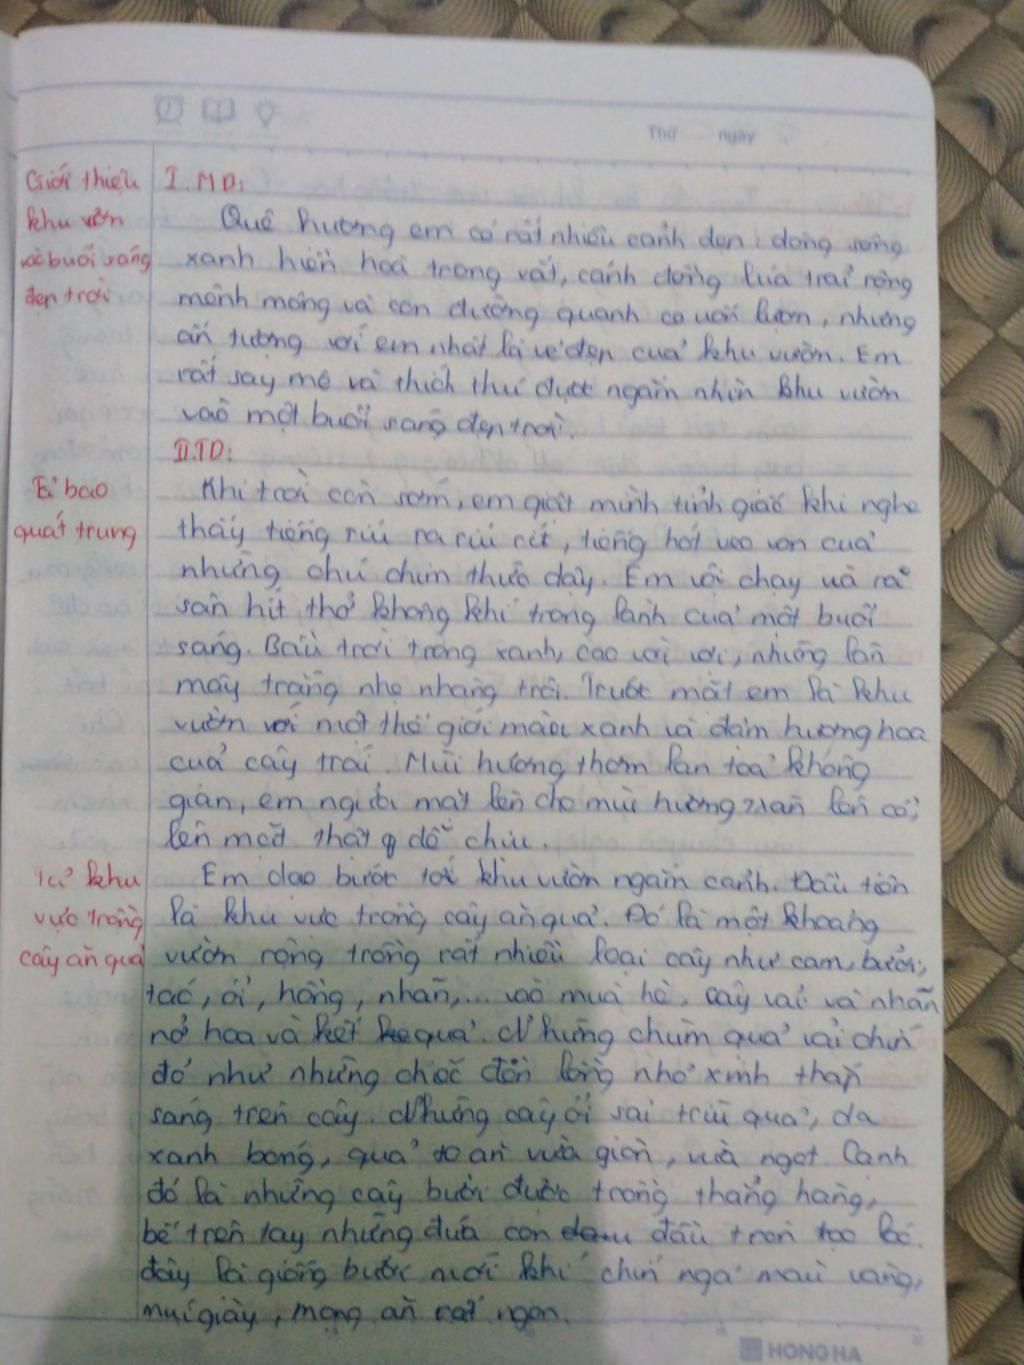 Thứ ngày
Giới thiệu
khu vườn
vào buổi sáng
đẹp trời
I. MB:
Quê hương em có rất nhiều cảnh đẹp: dòng sông
xanh hiền hoà trong vắt, cánh đồng lúa trải rộng
mênh mông và con đường quanh co uốn lượn, nhưng
ấn tượng với em nhất là vẻ đẹp của khu vườn. Em
rất say mê và thích thú được ngắm nhìn khu vườn
vào một buổi sáng đẹp trời.
II. TB:
Tả bao
quát trung
Khi trời còn sớm, em giật mình tỉnh giấc khi nghe
thấy tiếng ríu ra ríu rít, tiếng hót véo von của
những chú chim thức dậy. Em vội chạy và ra
sân hít thở không khí trong lành của một buổi
sáng. Bầu trời trong xanh, cao vời vợi, những làn
mây trắng nhẹ nhàng trôi. Trước mắt em là khu
vườn với một thế giới màu xanh và đậm hương hoa
của cây trái. Mùi hương thơm lan toả không
gian, em ngửa mặt lên cho mùi hương
lên mặt thật dễ chịu.
Tả khu
vực trồng
cây ăn quả
Em dạo bước tới khu vườn ngắm cảnh. Đầu tiên
là khu vực trồng cây ăn quả. Đó là một khoảng
vườn rộng trồng rất nhiều loại cây như cam, bưởi,
táo, ổi, hồng, nhãn,... vào mùa hè, cây vải và nhãn
nở hoa và kết quả. Những chùm quả vải chín
đỏ như những chiếc đèn lồng nhỏ xinh thắp
sáng trên cây. Những cây ổi sai trĩu quả, da
xanh bóng, quả to ăn vừa giòn, vừa ngọt. Cạnh
đó là những cây bưởi được trồng thẳng hàng,
bế trên tay những đứa con đầu tròn lốc.
đây là giống bưởi mới khi chín ngả màu vàng,
múi giày, mọng ăn rất ngon.
HONG HA